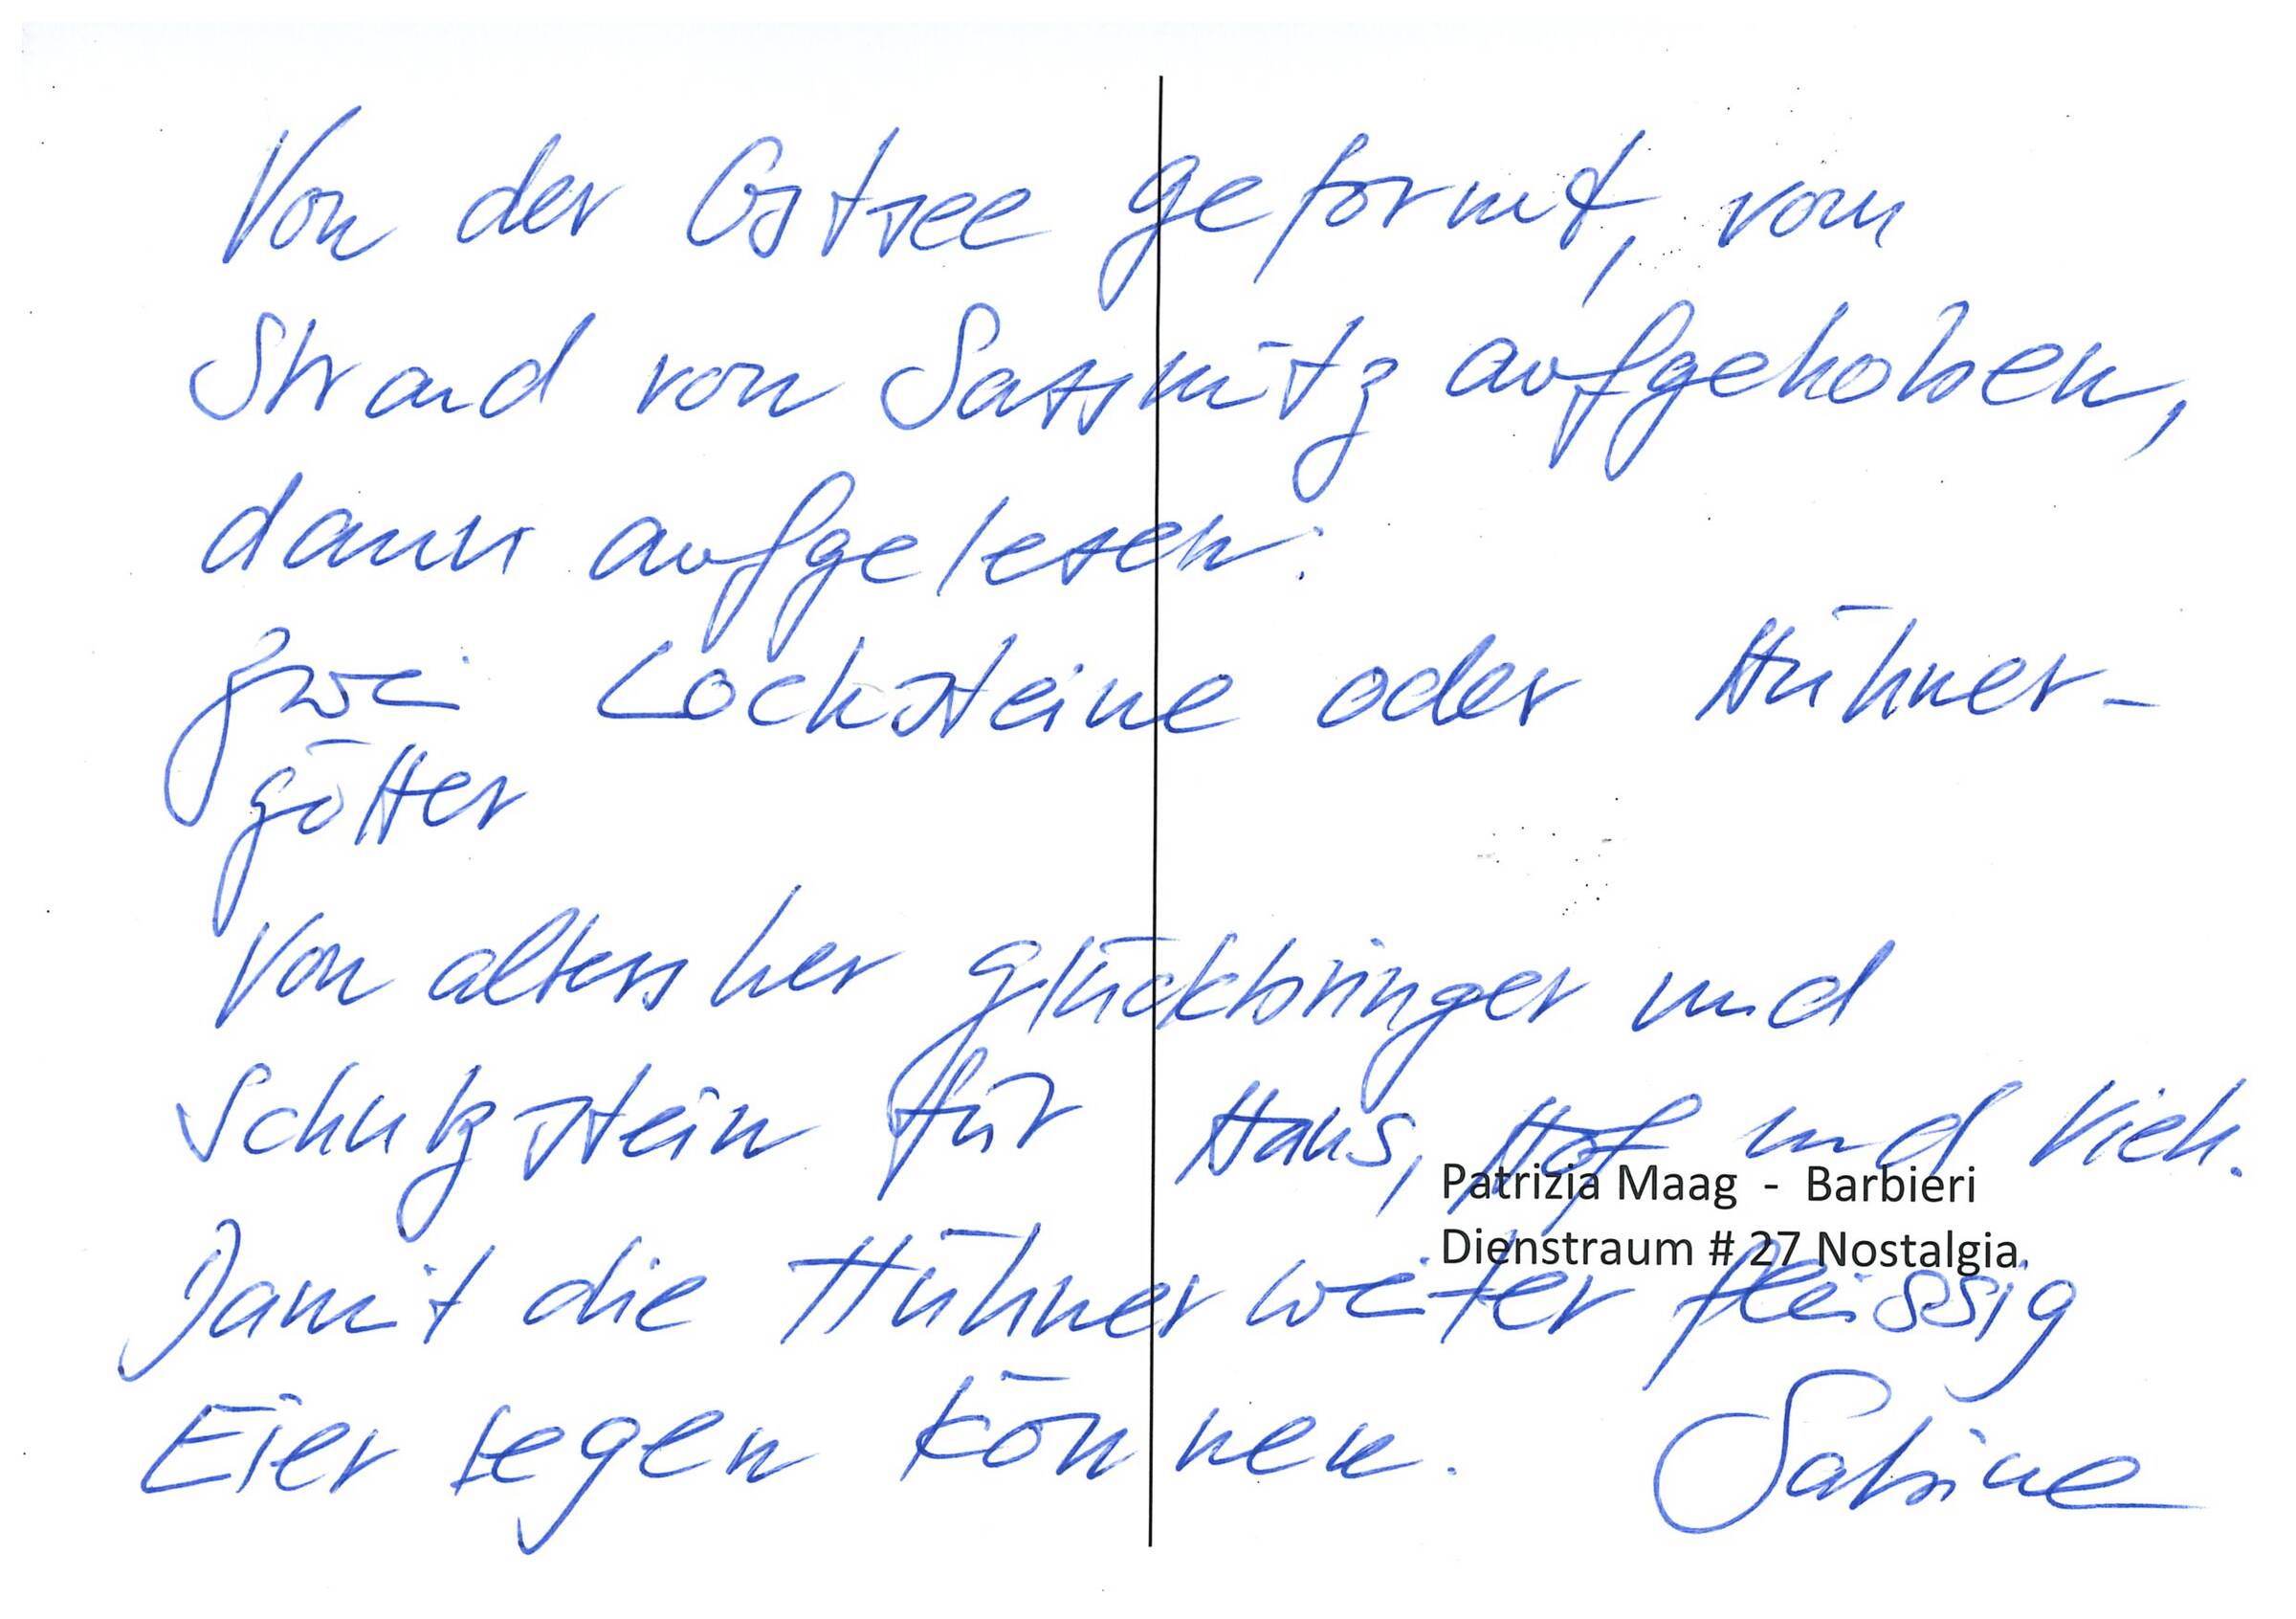 Von der Ostsee geformt, vom
Strand von Sassnitz aufgehoben,
dann aufgelesen:
Zwei Locksteine oder Hühner-
götter
Von alters her glückbringer und
Schutzstein für Haus, Hof und Vieh.
Patrizia Maag - Barbieri
Dienstraum # 27 Nostalgia
Damit die Hühner weiter fleissig
Eier legen können. Sabine